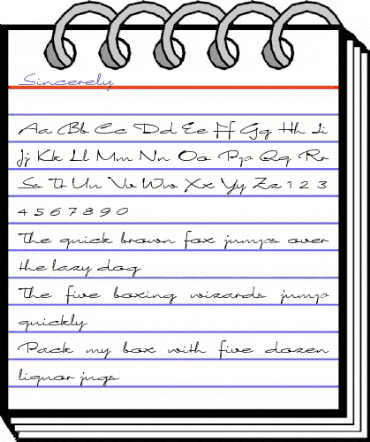 Sincerely
Aa Bb Cc Dd Ee Ff Gg Hh Ii
Jj Kk Ll Mm Nn Oo Pp Qq Rr
Ss Tt Uu Vv Ww Xx Yy Zz 1 2 3
4 5 6 7 8 9 0
The quick brown fox jumps over
the lazy dog
The five boxing wizards jump
quickly
Pack my box with five dozen
liquor jugs